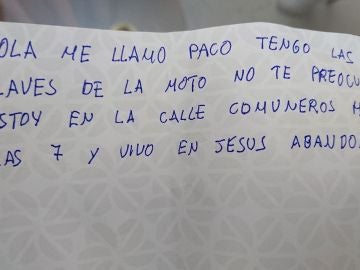 OLA ME LLAMO PACO TENGO LAS
LAVES DE LA MOTO NO TE PREOCU
STOY EN LA CALLE COMUNEROS H
AS 7 Y VIVO EN JESUS ABANDO